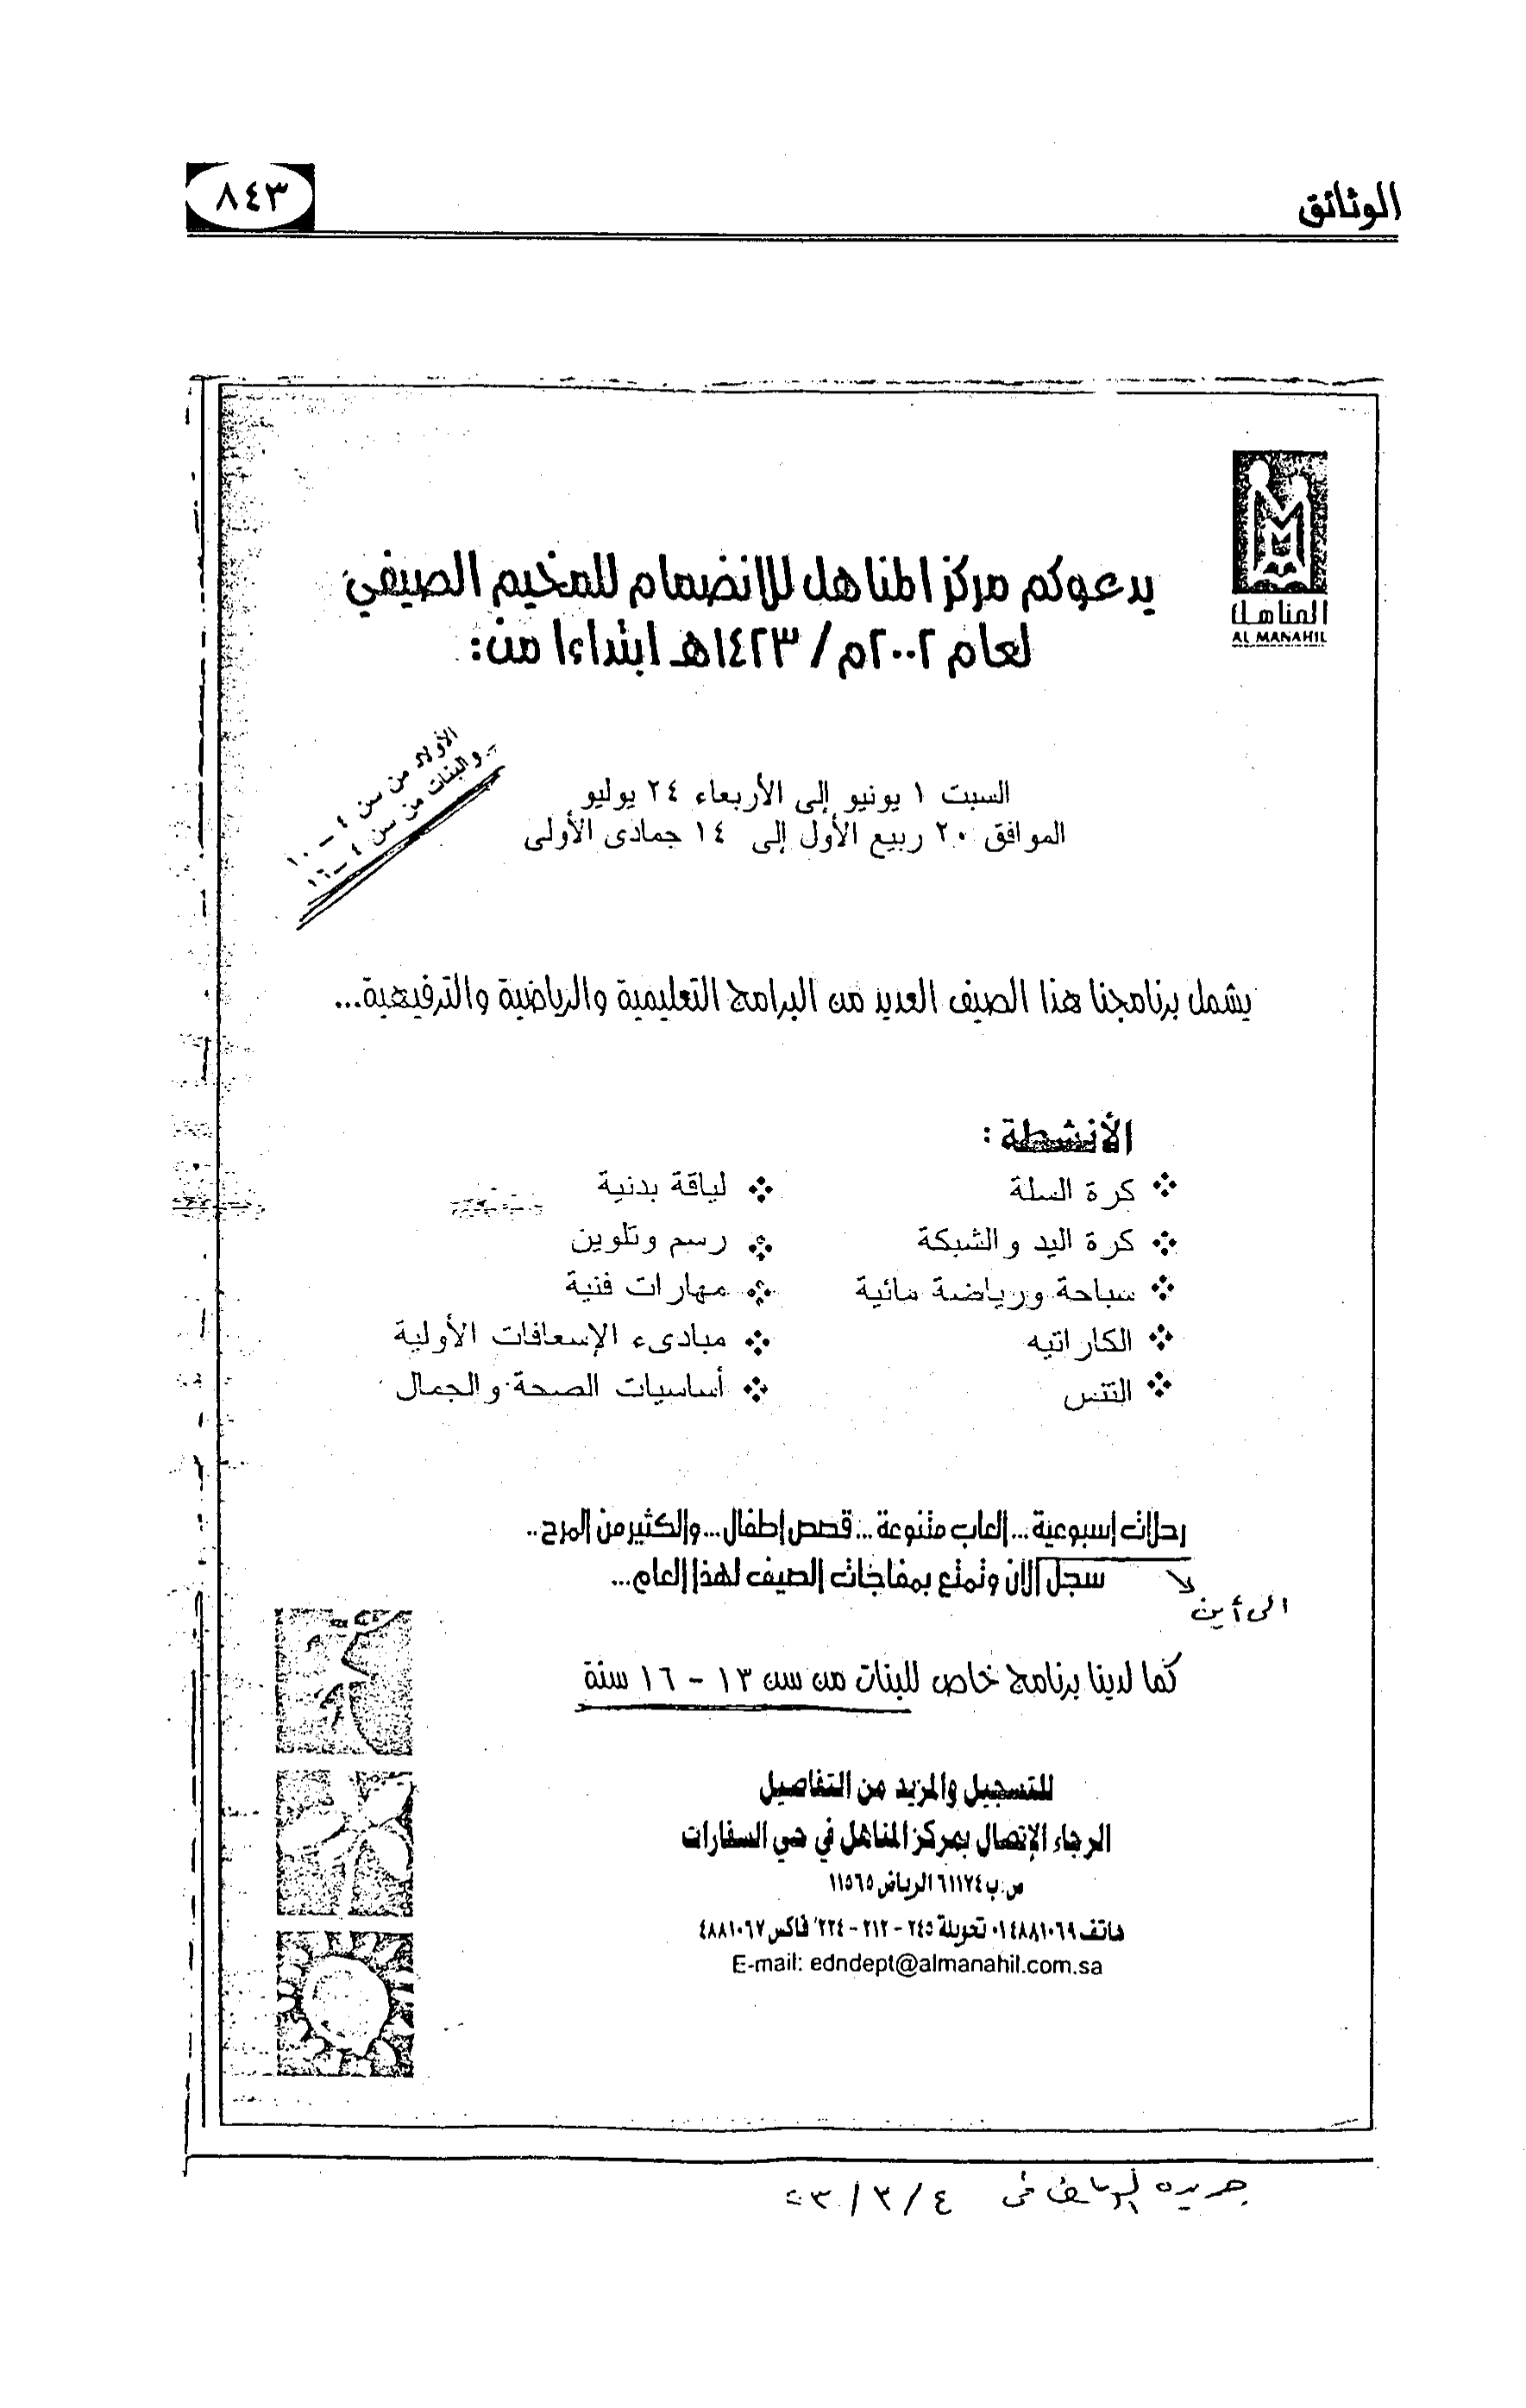 الوثائق
٨٤٣
المناهل
AL MANAHIL
يدعوكم مركز المناهل للانضمام للمخيم الصيفي
لعام ٢٠٠٢م / ١٤٢٣هـ ابتداءا من:
الأولاد من سن ٤ - ١٠
والبنات من سن ٤ - ١٦
السبت ١ يونيو إلى الأربعاء ٢٤ يوليو
الموافق ٢٠ ربيع الأول إلى ١٤ جمادى الأولى
يشمل برنامجنا هذا الصيف العديد من البرامج التعليمية والرياضية والترفيهية...
الأنشطة :
❖ كرة السلة
❖ كرة اليد والشبكة
❖ سباحة ورياضة مائية
❖ الكاراتيه
❖ التنس
❖ لياقة بدنية
❖ رسم وتلوين
❖ مهارات فنية
❖ مبادىء الإسعافات الأولية
❖ أساسيات الصحة والجمال
رحلات إسبوعية... العاب متنوعة... قصص إطفال... والكثير من المرح..
سجل الآن وتمتع بمفاجات الصيف لهذا العام...
الى أين
كما لدينا برنامج خاص للبنات من سن ١٣ - ١٦ سنة
للتسجيل والمزيد من التفاصيل
الرجاء الإتصال بمركز المناهل في حي السفارات
ص.ب ٦١١٧٤ الرياض ١١٥٦٥
هاتف ٠١٤٨٨١٠٦٩ تحويلة ٢٤٥ - ٢١٢ - ٢٢٤ فاكس ٤٨٨١٠٦٧
E-mail: edndept@almanahil.com.sa
جريدة الرياض في ٤ / ٣ / ٢٣